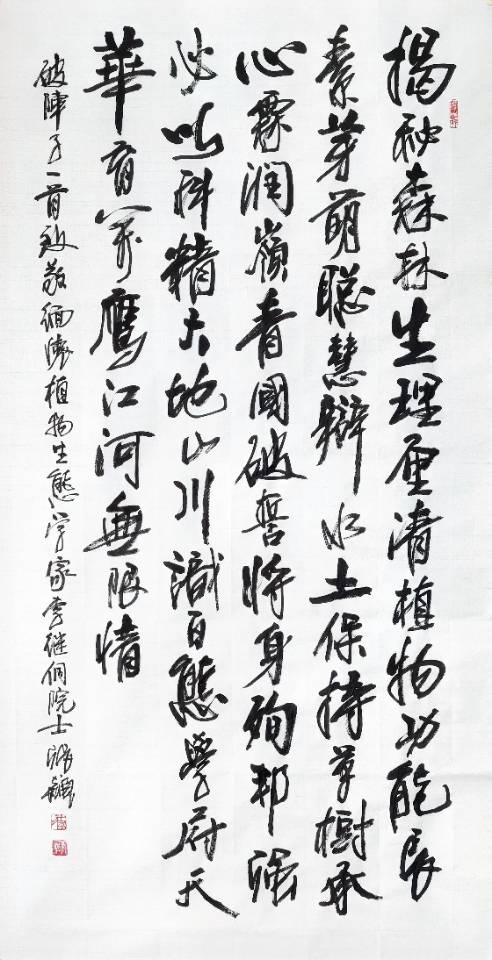 揭秘森林生理厘清植物功能辰
素芽萌聰慧辯水土保持草樹承
心霖潤嶺青國破誓將身殉邦強
必以科精大地山川識百態學府天
華育萬鷹江河無限情
破陣子一首致敬緬懷植物生態学家李继侗院士